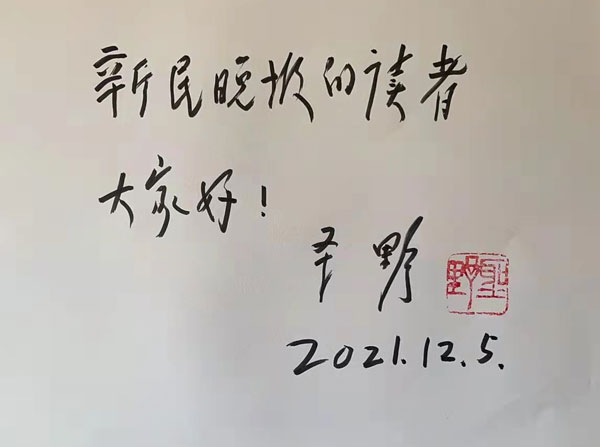 新民晚报的读者
大家好！
圣野 圣野
2021.12.5.